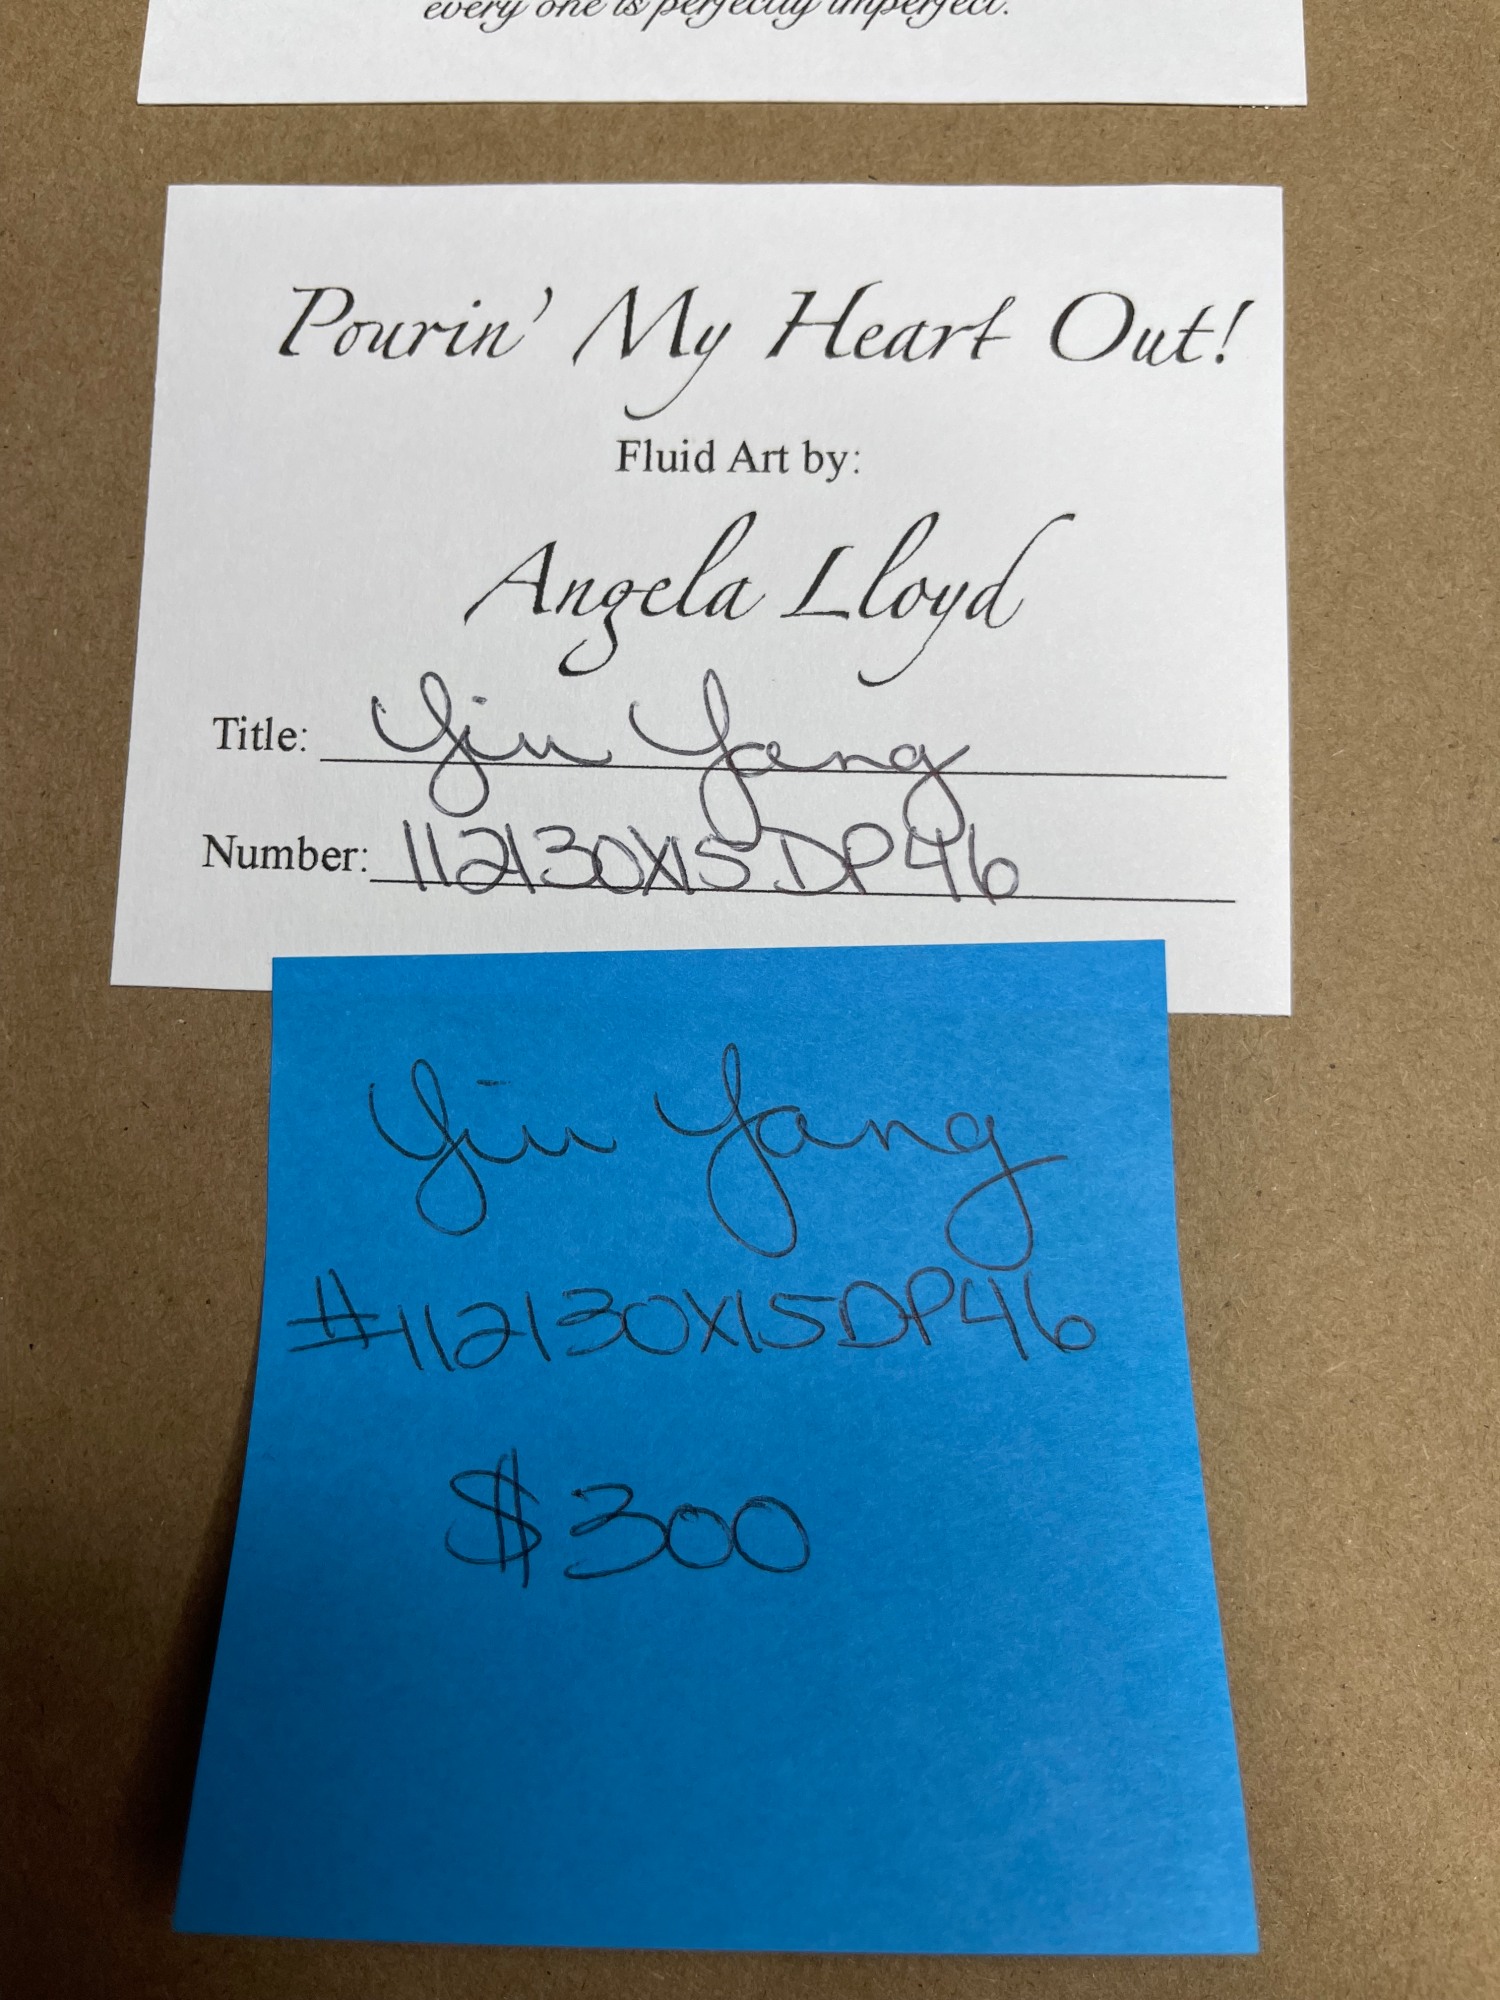 every one is perfectly imperfect.
Pourin' My Heart Out!
Fluid Art by:
Angela Lloyd
Title: Yin Yang
Number: 112130X15DP46
Yin Yang
#112130X15DP46
$300